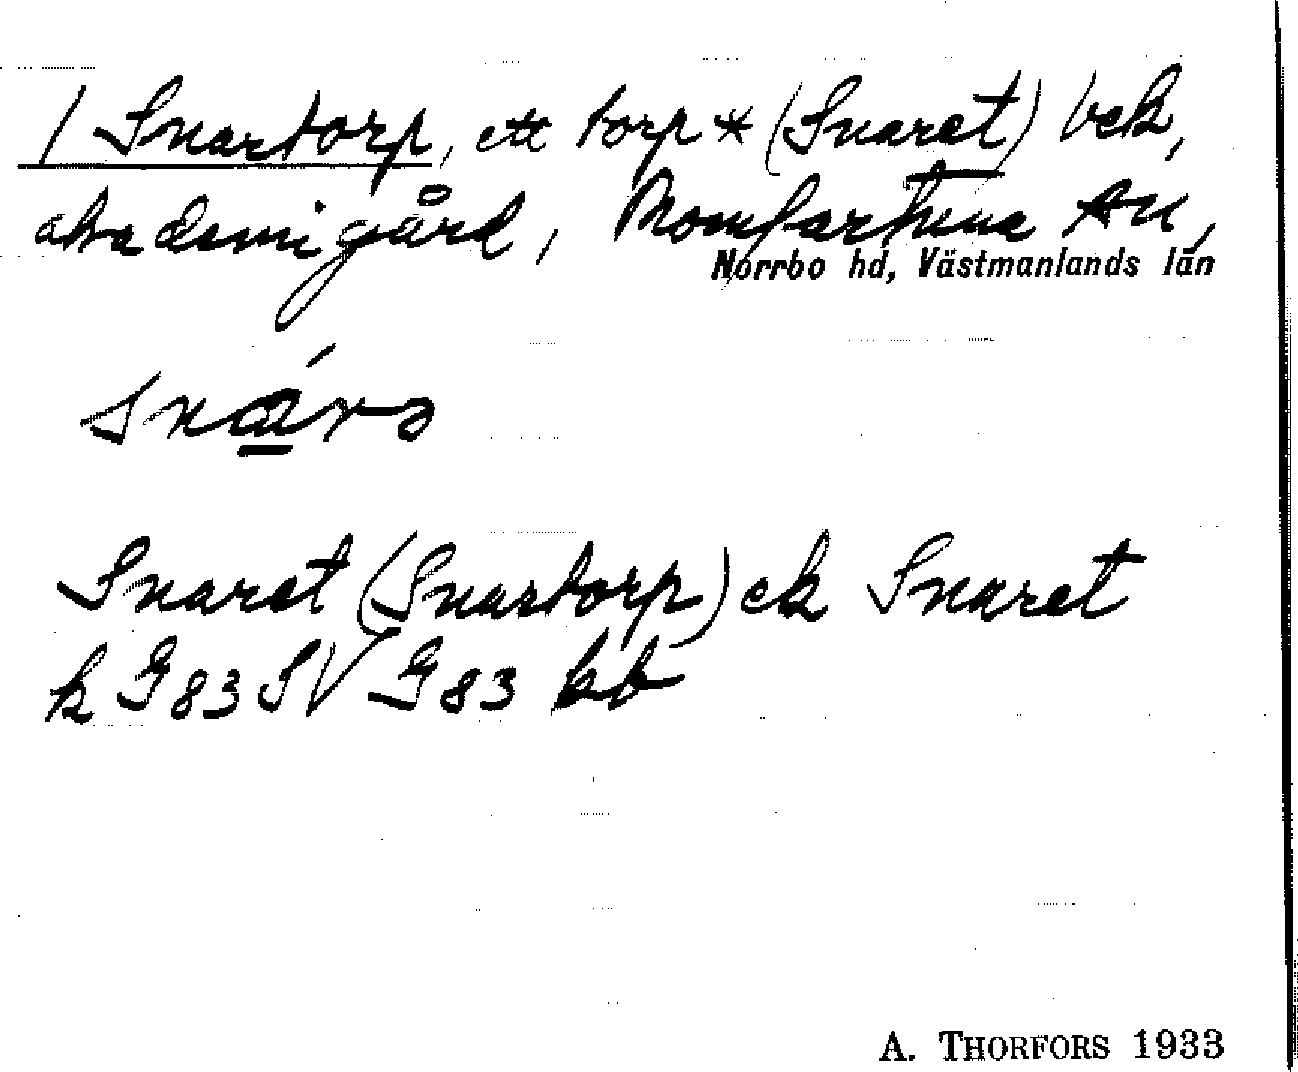 / Snartorp, ett torp * (Snaret) bek,
akademigård, Romfartuna sn,
Norrbo hd, Västmanlands län
Snarə
Snaret (Snartorp) ek Snaret
k G 83 SV G 83 kb
A. THORFORS 1933